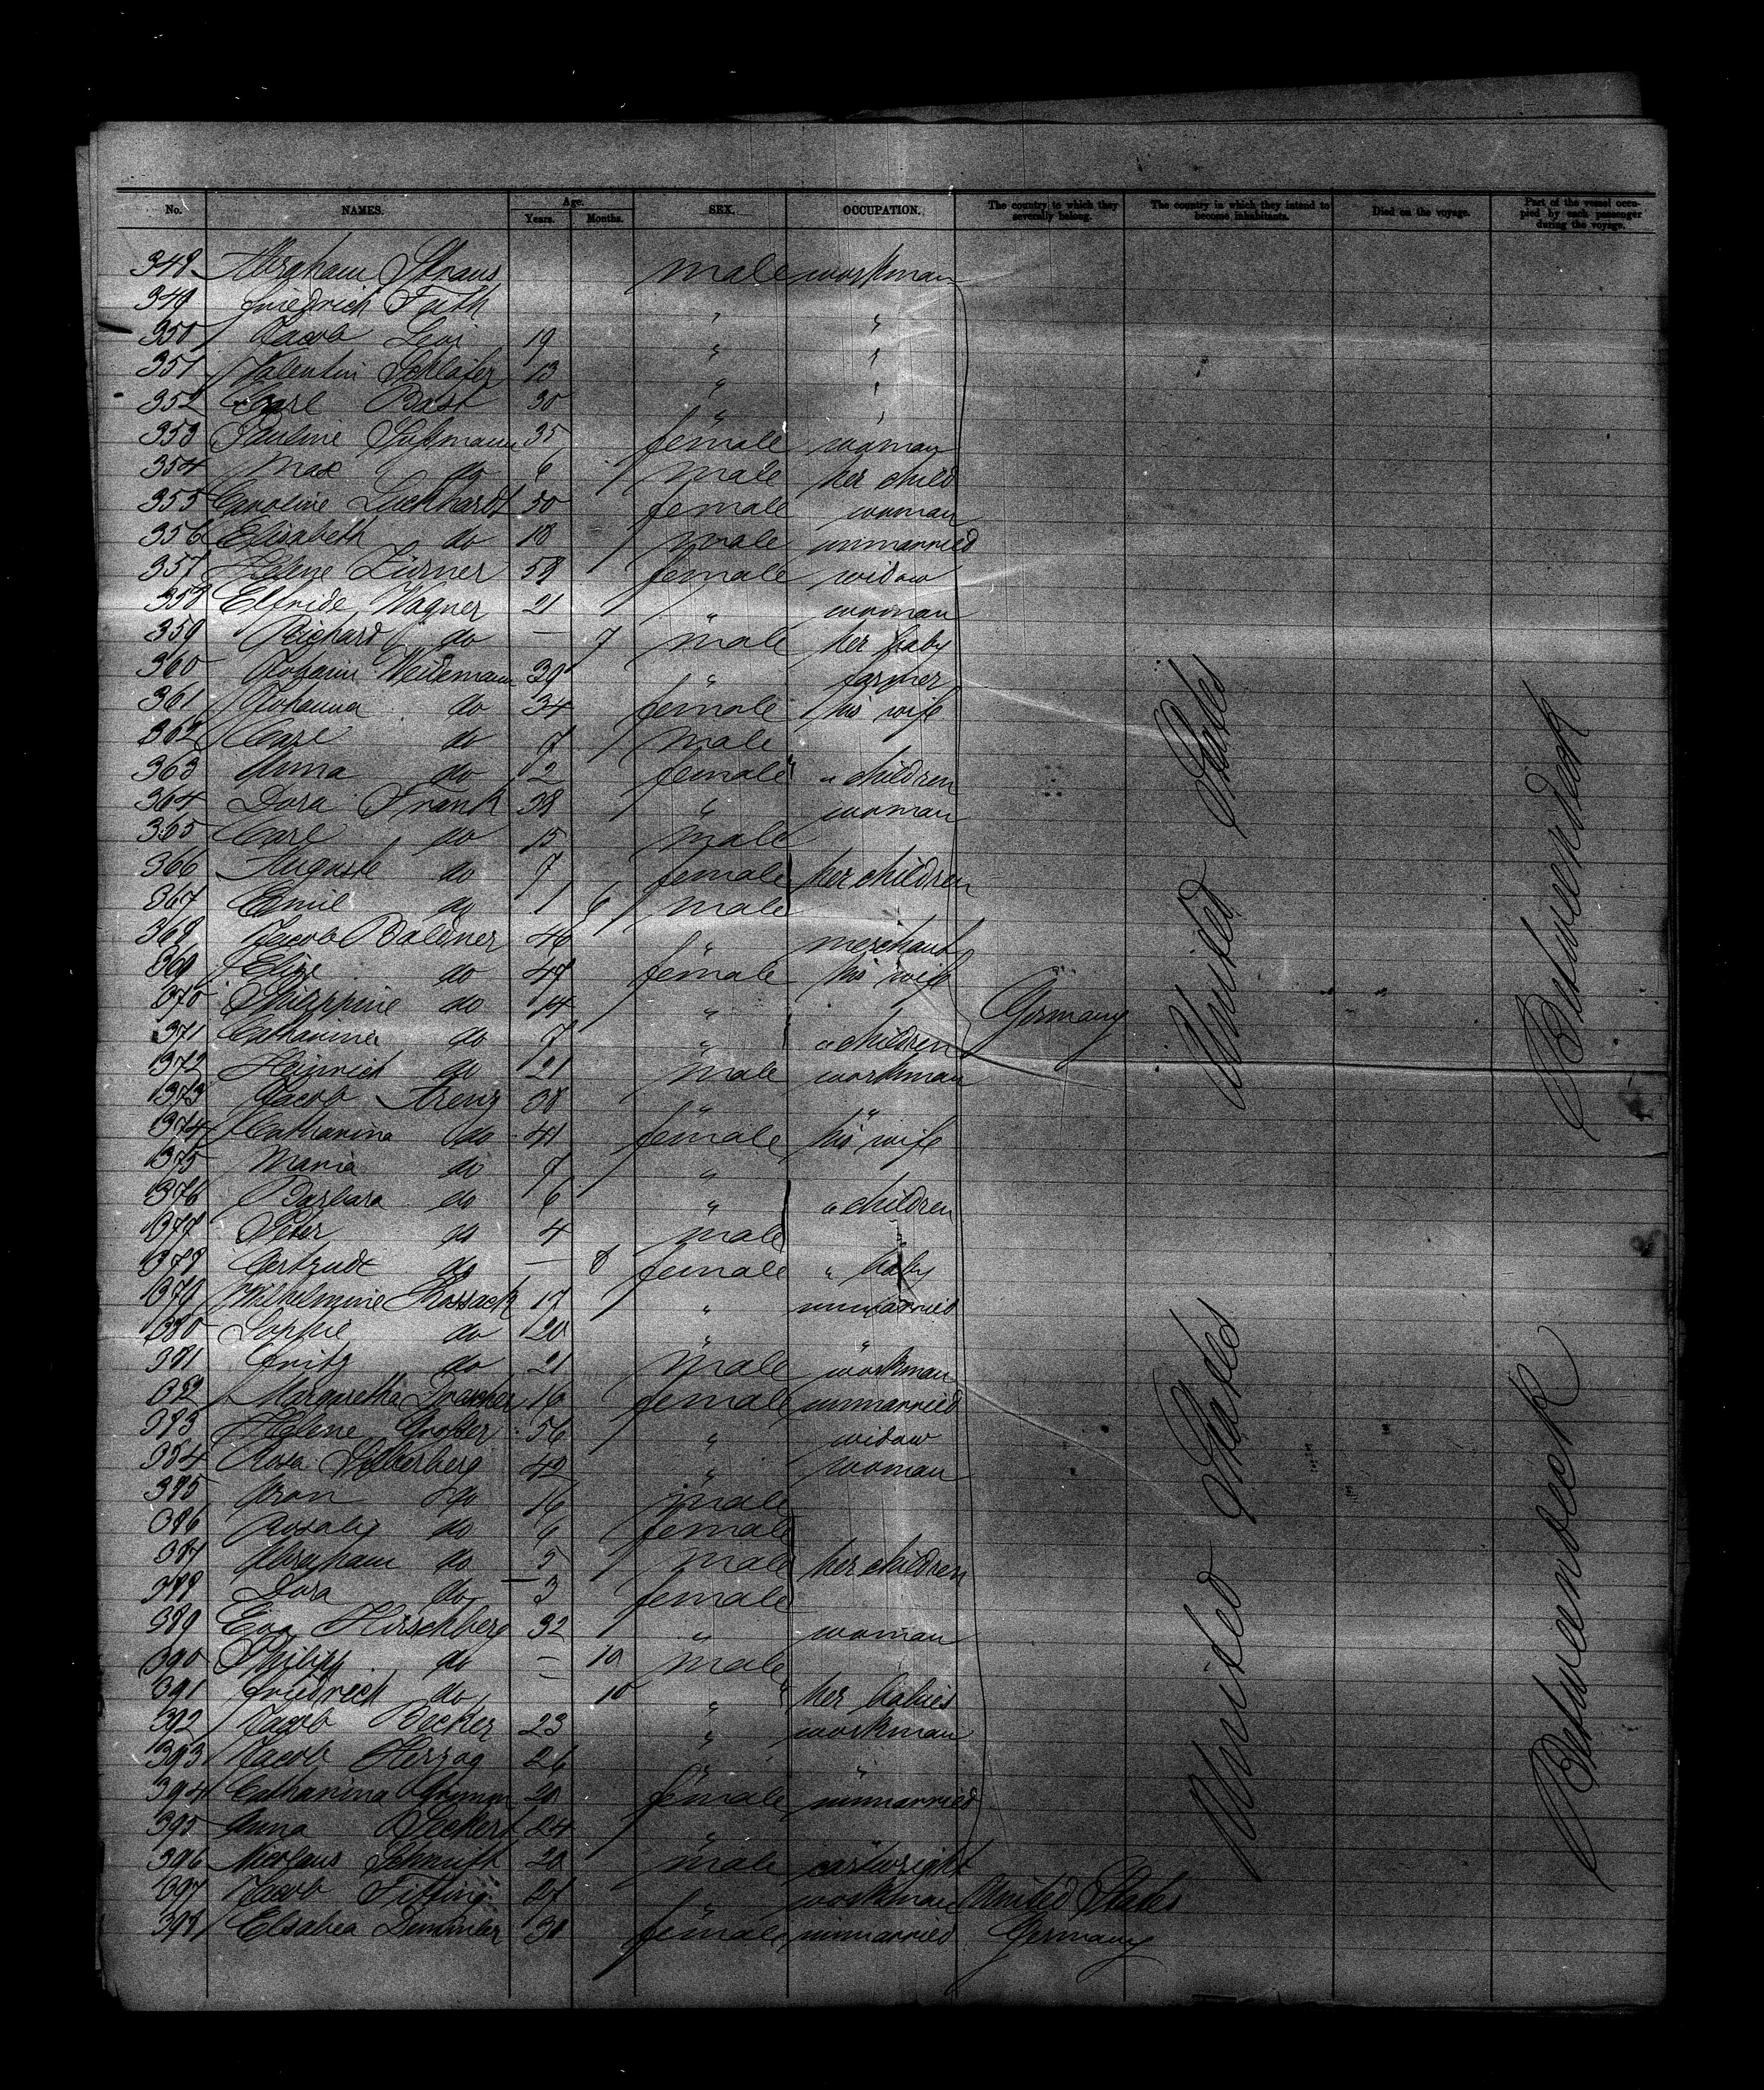 No. NAMES. Age. Years. Months. SEX. OCCUPATION. The country to which they severally belong. The country in which they intend to become inhabitants. Died on the voyage. Part of the vessel occupied by each passenger during the voyage.
348 Abraham Straus male workman
349 Friedrich Fath " "
350 Jacob Levi 19 " "
351 Valentin Schläfer 13 " "
352 Carl Bast 30 " "
353 Pauline 35 female woman
354 Max do 6 male her child
355 Caroline Luckhardt 50 female woman
356 Elisabeth do 18 male unmarried
357 Helene Zürner 58 female widow
358 Elfride Wagner 21 " woman
359 Richard do — 7 male her baby
360 Johann Weidemann 39 " farmer
361 Johanna do 34 female his wife
362 Carl do 7 male
363 Anna do 2 female " children
364 Dora Frank 38 " woman
365 Carl do 15 male
366 Auguste do 7 female her children
367 Emil do 1 6 male
368 Jacob Baldner 46 " merchant
369 Elise do 47 female his wife
370 Philippine do 14 " Germany
371 Catharina do 7 " " children
372 Heinrich do 21 male workman
373 Jacob Arenz 38 " "
374 Catharina do 41 female his wife
375 Maria do 7 "
376 Barbara do 6 " " children
377 Peter do 4 male
378 Gertrudt do — 8 female " baby
379 Wilhelmine Rossack 17 " unmarried
380 Sophie do 20 " "
381 Fritz do 21 male workman
382 Margaretha 16 female unmarried
383 Helene 56 " widow
384 Rosa Silberberg 42 " woman
385 Aron do 16 male
386 Rosalie do 6 female
387 Abraham do 5 male her children
388 Dora do 3 female
389 Eva Hirschberg 32 " woman
390 Philipp do — 10 male
391 Friedrich do 10 " her babies
392 Jacob Becker 23 " workman
393 Jacob Herzog 26 " "
394 Catharina Grimm 20 female unmarried
395 Anna Seckert 24 " "
396 Nicolaus Schmitt 20 male cartwright
397 Jacob Fitting 27 " workman United States
398 Elsabea Demmler 30 female unmarried Germany
United States
United States
Betweendeck
Betweendeck